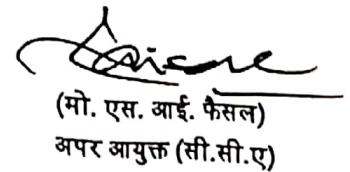 (मो. एस. आई. फैसल)
अपर आयुक्त (सी.सी.ए)